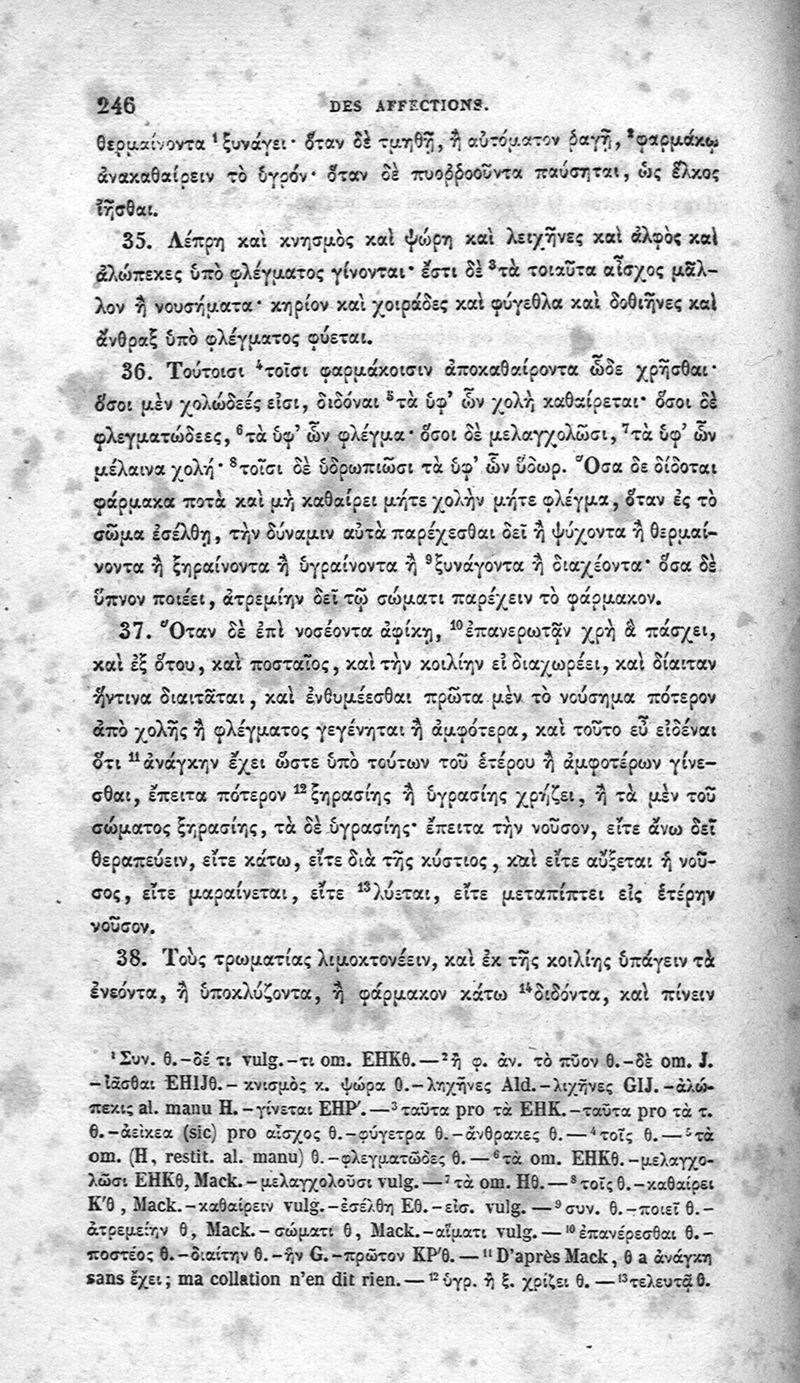 246 DES AFFECTIONS.
θερμαίνοντα ¹ξυνάγει· ὅταν δὲ τμηθῇ, ἢ αὐτόματον ῥαγῇ, ²φαρμάκῳ
ἀνακαθαίρειν τὸ ὑγρόν· ὅταν δὲ πυοῤῥοοῦντα παύσηται, ὡς ἕλκος
ἰῆσθαι.
35. Λέπρη καὶ κνησμὸς καὶ ψώρη καὶ λειχῆνες καὶ ἀλφὸς καὶ
ἀλώπεκες ὑπὸ φλέγματος γίνονται· ἔστι δὲ ³τὰ τοιαῦτα αἶσχος μᾶλ-
λον ἢ νουσήματα· κηρίον καὶ χοιράδες καὶ φύγεθλα καὶ δοθιῆνες καὶ
ἄνθραξ ὑπὸ φλέγματος φύεται.
36. Τούτοισι ⁴τοῖσι φαρμάκοισιν ἀποκαθαίροντα ὧδε χρῆσθαι·
ὅσοι μὲν χολώδεές εἰσι, διδόναι ⁵τὰ ὑφ’ ὧν χολὴ καθαίρεται· ὅσοι δὲ
φλεγματώδεες, ⁶τὰ ὑφ’ ὧν φλέγμα· ὅσοι δὲ μελαγχολῶσι, ⁷τὰ ὑφ’ ὧν
μέλαινα χολή· ⁸τοῖσι δὲ ὑδρωπιῶσι τὰ ὑφ’ ὧν ὕδωρ. Ὅσα δε δίδοται
φάρμακα ποτὰ καὶ μὴ καθαίρει μήτε χολὴν μήτε φλέγμα, ὅταν ἐς τὸ
σῶμα ἐσέλθῃ, τὴν δύναμιν αὐτὰ παρέχεσθαι δεῖ ἢ ψύχοντα ἢ θερμαί-
νοντα ἢ ξηραίνοντα ἢ ὑγραίνοντα ἢ ⁹ξυνάγοντα ἢ διαχέοντα· ὅσα δὲ
ὕπνον ποιέει, ἀτρεμίην δεῖ τῷ σώματι παρέχειν τὸ φάρμακον.
37. Ὅταν δὲ ἐπὶ νοσέοντα ἀφίκῃ, ¹⁰ἐπανερωτᾷν χρὴ ἃ πάσχει,
καὶ ἐξ ὅτου, καὶ ποσταῖος, καὶ τὴν κοιλίην εἰ διαχωρέει, καὶ δίαιταν
ἥντινα διαιτᾶται, καὶ ἐνθυμέεσθαι πρῶτα μὲν τὸ νούσημα πότερον
ἀπὸ χολῆς ἢ φλέγματος γεγένηται ἢ ἀμφότερα, καὶ τοῦτο εὖ εἰδέναι
ὅτι ¹¹ἀνάγκην ἔχει ὥστε ὑπὸ τούτων τοῦ ἑτέρου ἢ ἀμφοτέρων γίνε-
σθαι, ἔπειτα πότερον ¹²ξηρασίης ἢ ὑγρασίης χρῄζει, ἢ τὰ μὲν τοῦ
σώματος ξηρασίης, τὰ δὲ ὑγρασίης· ἔπειτα τὴν νοῦσον, εἴτε ἄνω δεῖ
θεραπεύειν, εἴτε κάτω, εἴτε διὰ τῆς κύστιος, καὶ εἴτε αὔξεται ἡ νοῦ-
σος, εἴτε μαραίνεται, εἴτε ¹³λύεται, εἴτε μεταπίπτει εἰς ἑτέρην
νοῦσον.
38. Τοὺς τρωματίας λιμοκτονέειν, καὶ ἐκ τῆς κοιλίης ὑπάγειν τὰ
ἐνεόντα, ἢ ὑποκλύζοντα, ἢ φάρμακον κάτω ¹⁴διδόντα, καὶ πίνειν
¹Συν. θ.–δέ τι vulg.–τι om. EHKθ.—²ἢ φ. ἀν. τὸ πῦον θ.–δὲ om. J.
–ἰᾶσθαι EHIJθ.–κνισμὸς κ. ψώρα θ.–ληχῆνες Ald.–λιχῆνες GIJ.–ἀλώ-
πεκις al. manu H.–γίνεται EHP′.—³ταῦτα pro τὰ EHK.–ταῦτα pro τὰ τ.
θ.–ἀείκεα (sic) pro αἶσχος θ.–φύγετρα θ.–ἄνθρακες θ.—⁴τοῖς θ.—⁵τὰ
om. (H, restit. al. manu) θ.–φλεγματῶδες θ.—⁶τὰ om. EHKθ.–μελαγχο-
λῶσι EHKθ, Mack.–μελαγχολοῦσι vulg.—⁷τὰ om. Hθ.—⁸τοῖς θ.–καθαίρει
K′θ, Mack.–καθαίρειν vulg.–ἐσέλθη Eθ.–εἰσ. vulg.—⁹συν. θ.–ποιεῖ θ.–
ἀτρεμείην θ, Mack.–σώματι θ, Mack.–αἵματι vulg.—¹⁰ἐπανέρεσθαι θ.–
ποστέος θ.–διαίτην θ.–ἣν G.–πρῶτον KP′θ.—¹¹D’après Mack, θ a ἀνάγκη
sans ἔχει; ma collation n’en dit rien.—¹²ὑγρ. ἢ ξ. χρίζει θ.—¹³τελευτᾷ θ.